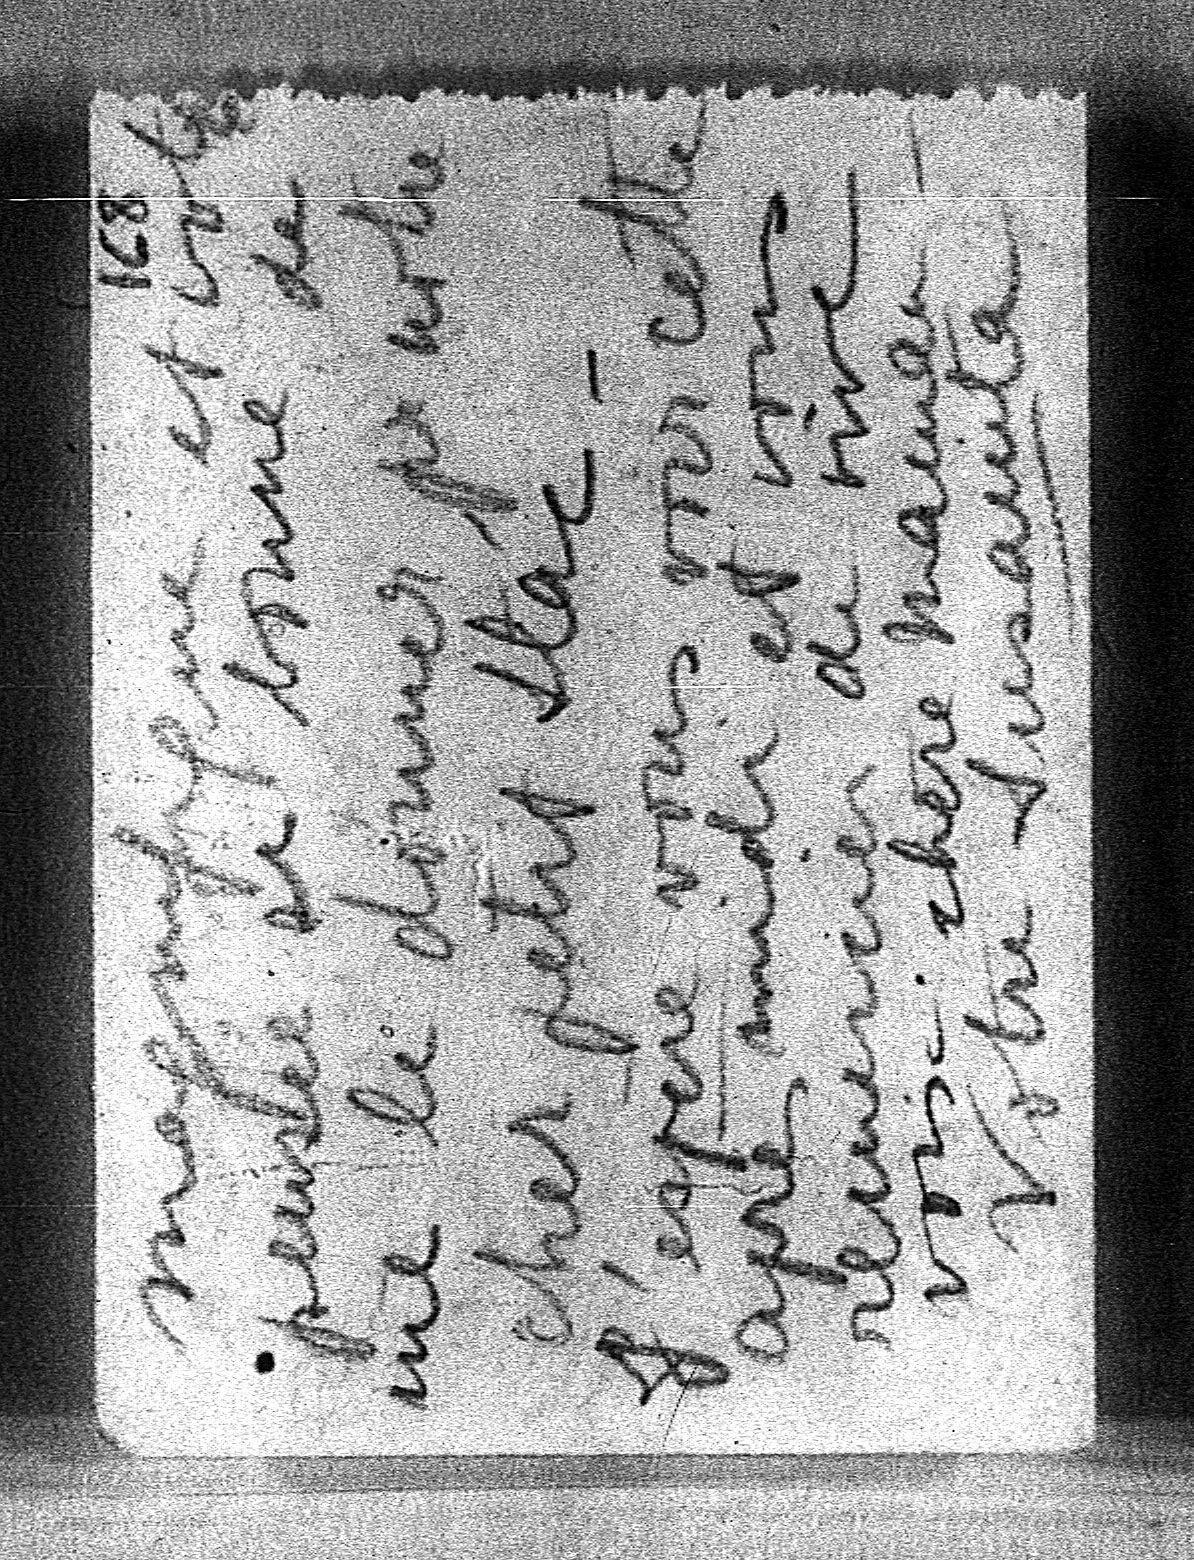 168
magnétophone et votre
pensée si bonne de
me le donner pr notre
cher petit Star –
J'espère vous voir cette
après midi et vous
remercier de vive
voix, chère maman –
Votre Susanita